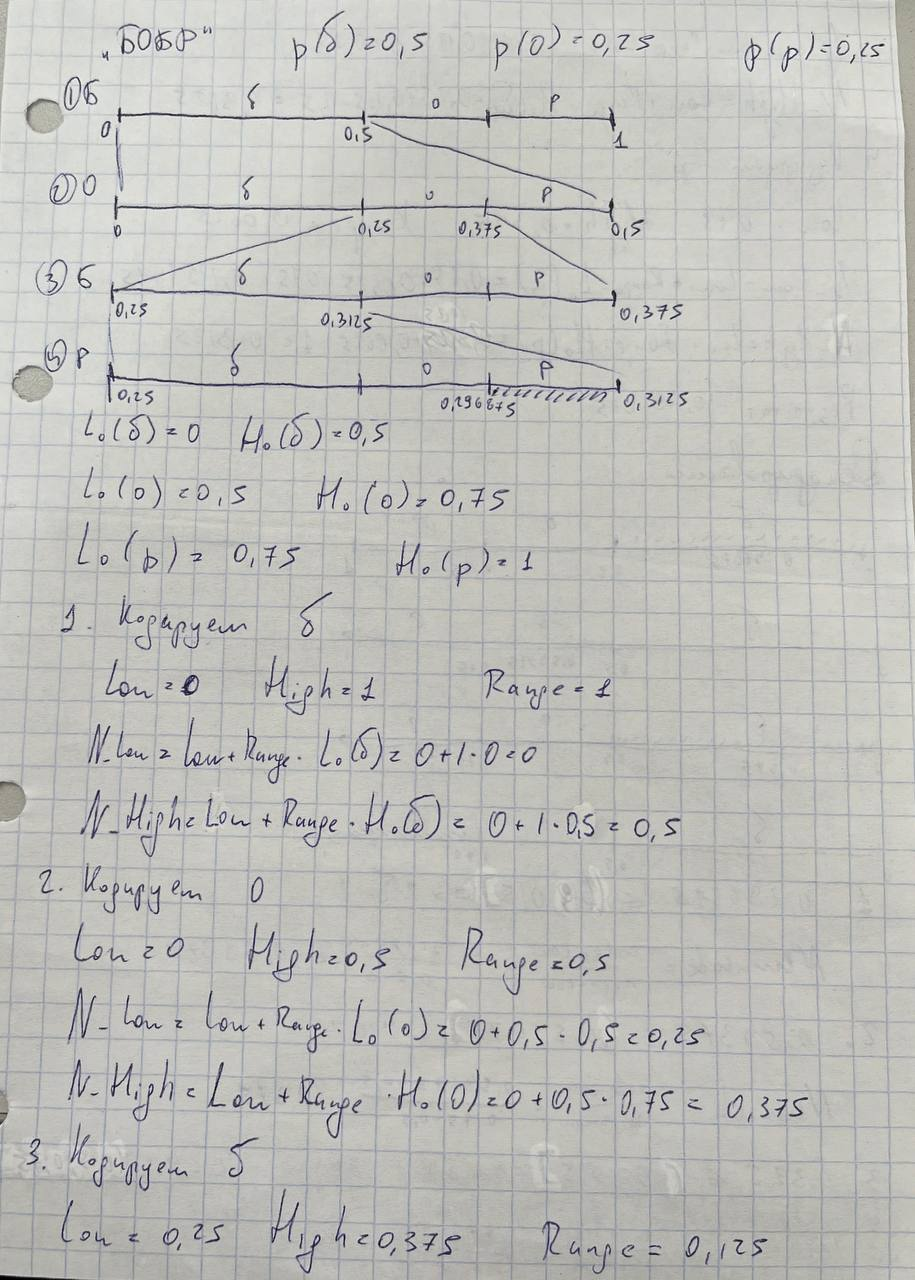 „БОБР“ p(б)=0,5 p(о)=0,25 p(р)=0,25
① Б б о р
0 0,5 1
② О б о р
0 0,25 0,375 0,5
③ Б б о р
0,25 0,3125 0,375
④ Р б о р
0,25 0,296875 0,3125
L₀(б)=0 H₀(б)=0,5
L₀(о)=0,5 H₀(о)=0,75
L₀(р)=0,75 H₀(р)=1
1. Кодируем б
Low=0 High=1 Range=1
N-Low=Low+Range·L₀(б)=0+1·0=0
N-High=Low+Range·H₀(б)=0+1·0,5=0,5
2. Кодируем О
Low=0 High=0,5 Range=0,5
N-Low=Low+Range·L₀(о)=0+0,5·0,5=0,25
N-High=Low+Range·H₀(О)=0+0,5·0,75=0,375
3. Кодируем б
Low=0,25 High=0,375 Range=0,125